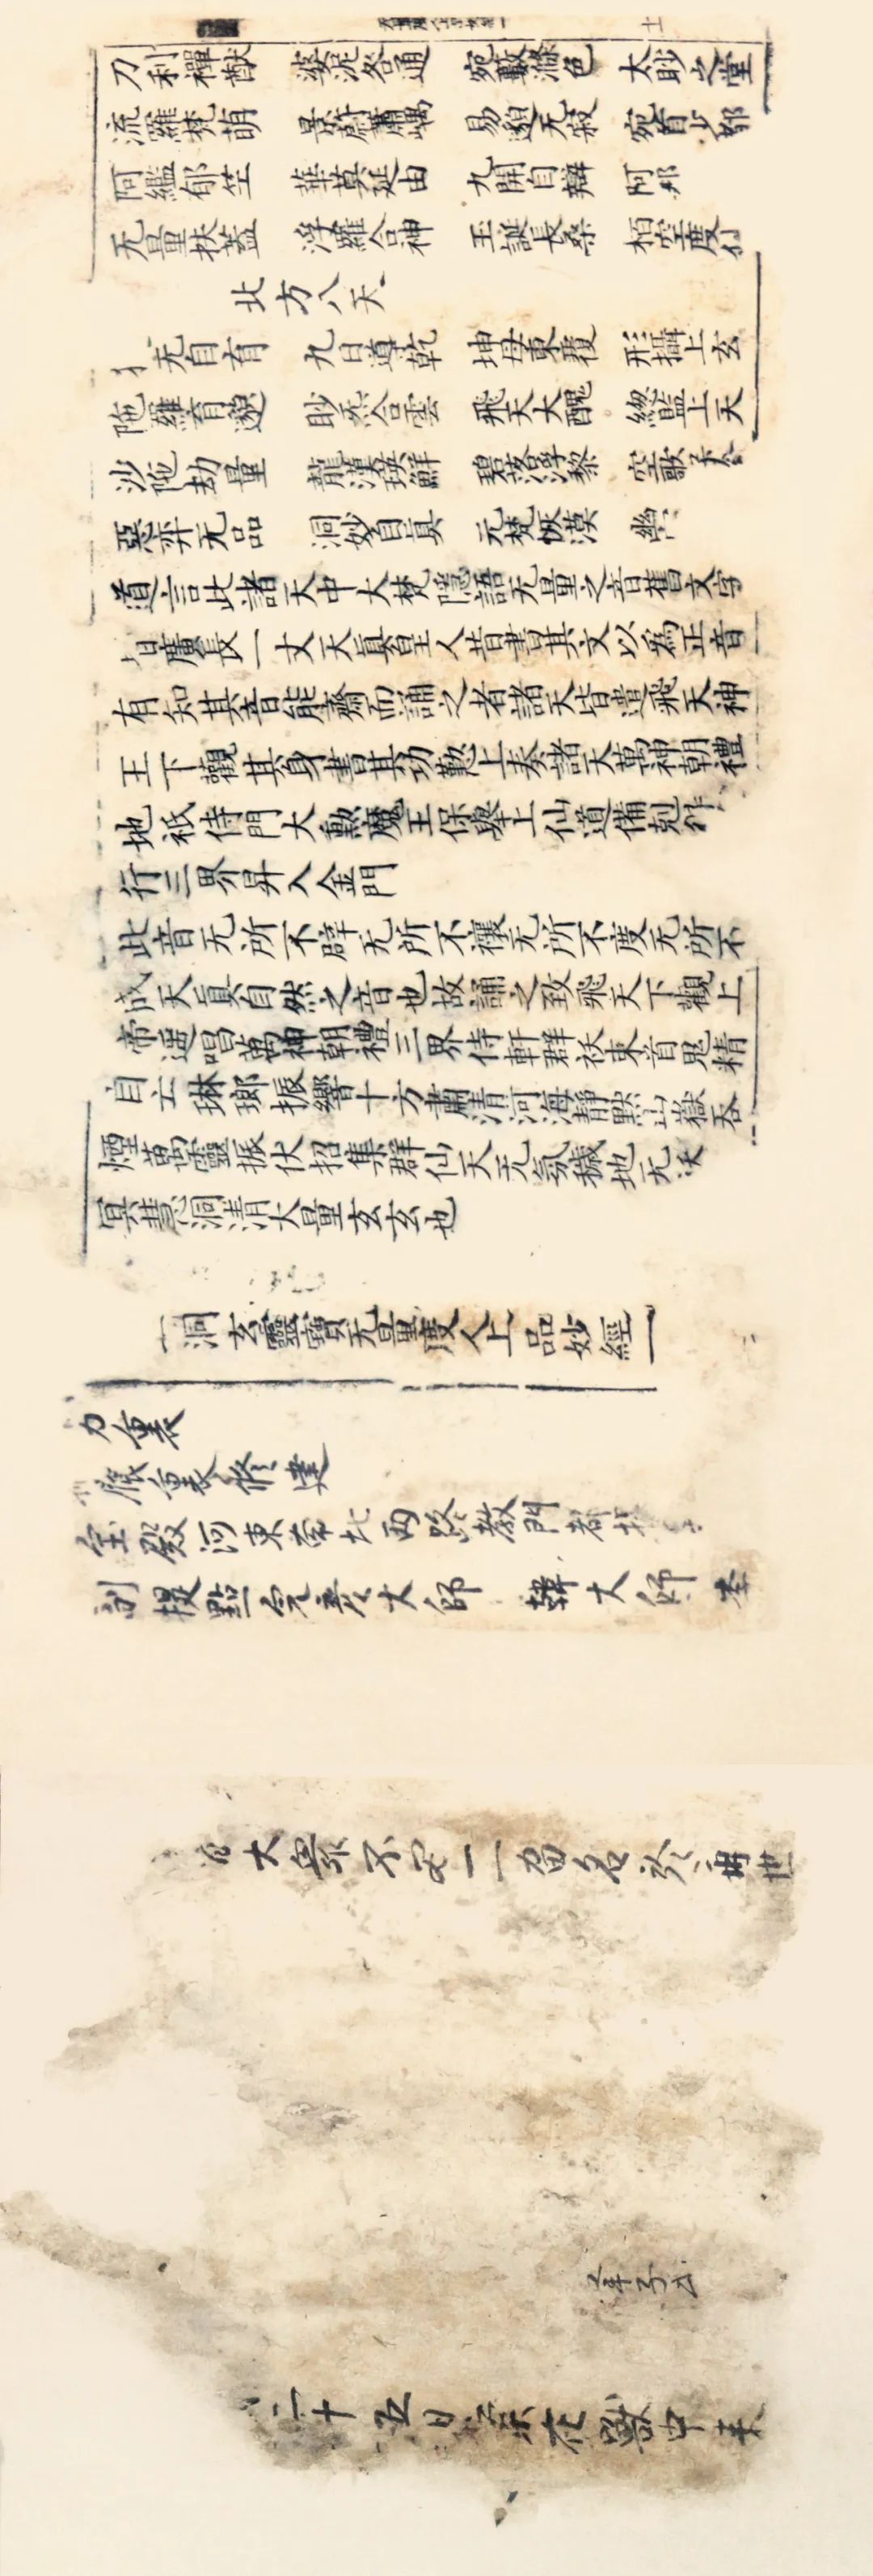 刀利禪猷 婆泥咎通 宛藪滌色 太眇之堂
流羅梵萌 景蔚蕭嵎 易邈无寂 宛首少都
阿濫郁竺 華莫延由 九開自辯 阿那
无量扶蓋 浮羅合神 玉誕長桑 栢空度仙
北方八天
无自育 九日導乾 坤母東覆 形攝上玄
陁羅育邈 眇炁合雲 飛天大醜 總監上天
沙陁劫量 龍漢瑛鮮 碧落浮黎 空歌
惡弈无品 洞妙自真 元梵恢漠 幽
道言此諸天中大梵隱語无量之音舊文字
皆廣長一丈天真皇人昔書其文以爲正音
有知其音能齋而誦之者諸天皆遣飛天神
王下觀其身書其功勤上奏諸天萬神朝禮
地祇侍門大勲魔王保舉上仙道備剋
行三界昇入金門
此音无所不辟无所不禳无所不度无所不
成天真自然之音也故誦之致飛天下觀上
帝遥唱萬神朝禮三界侍軒群祅束首鬼精
自亡琳瑯振響十方肅清河海靜默山嶽吞
煙萬靈振伏招集群仙天无氛穢地无
冥慧洞清大量玄玄也
洞玄靈寶无量度人上品妙經
力重
重修建
宝殿河東南北两路教門都
副提點 大師 韓大師
大衆不 一 名 世
年
二十五日